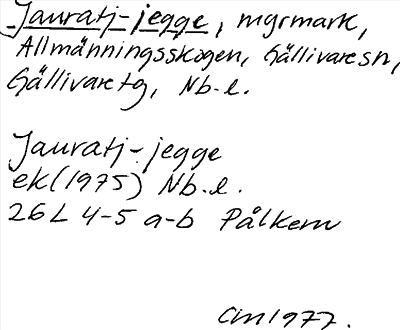 Jauratj-jegge, myrmark,
Allmänningsskogen, Gällivare sn,
Gällivare tg, Nb. l.
Jauratj-jegge
ek (1975) Nb. l.
26L 4-5 a-b Pålkem
CM 1977.